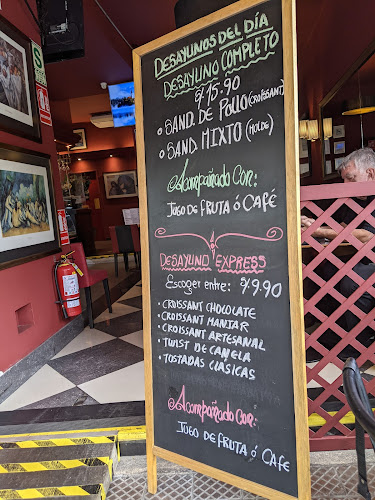 DESAYUNOS DEL DÍA
DESAYUNO COMPLETO
S/15.90
• SAND. DE POLLO (CROISSANT)
• SAND MIXTO (MOLDE)
Acompañado Con:
JUGO DE FRUTA Ó CAFÉ
DESAYUNO EXPRESS
Escoger entre: S/9.90
• CROISSANT CHOCOLATE
• CROISSANT MANJAR
• CROISSANT ARTESANAL
• TWIST DE CANELA
• TOSTADAS CLÁSICAS
Acompañado Con:
JUGO DE FRUTA Ó CAFÉ